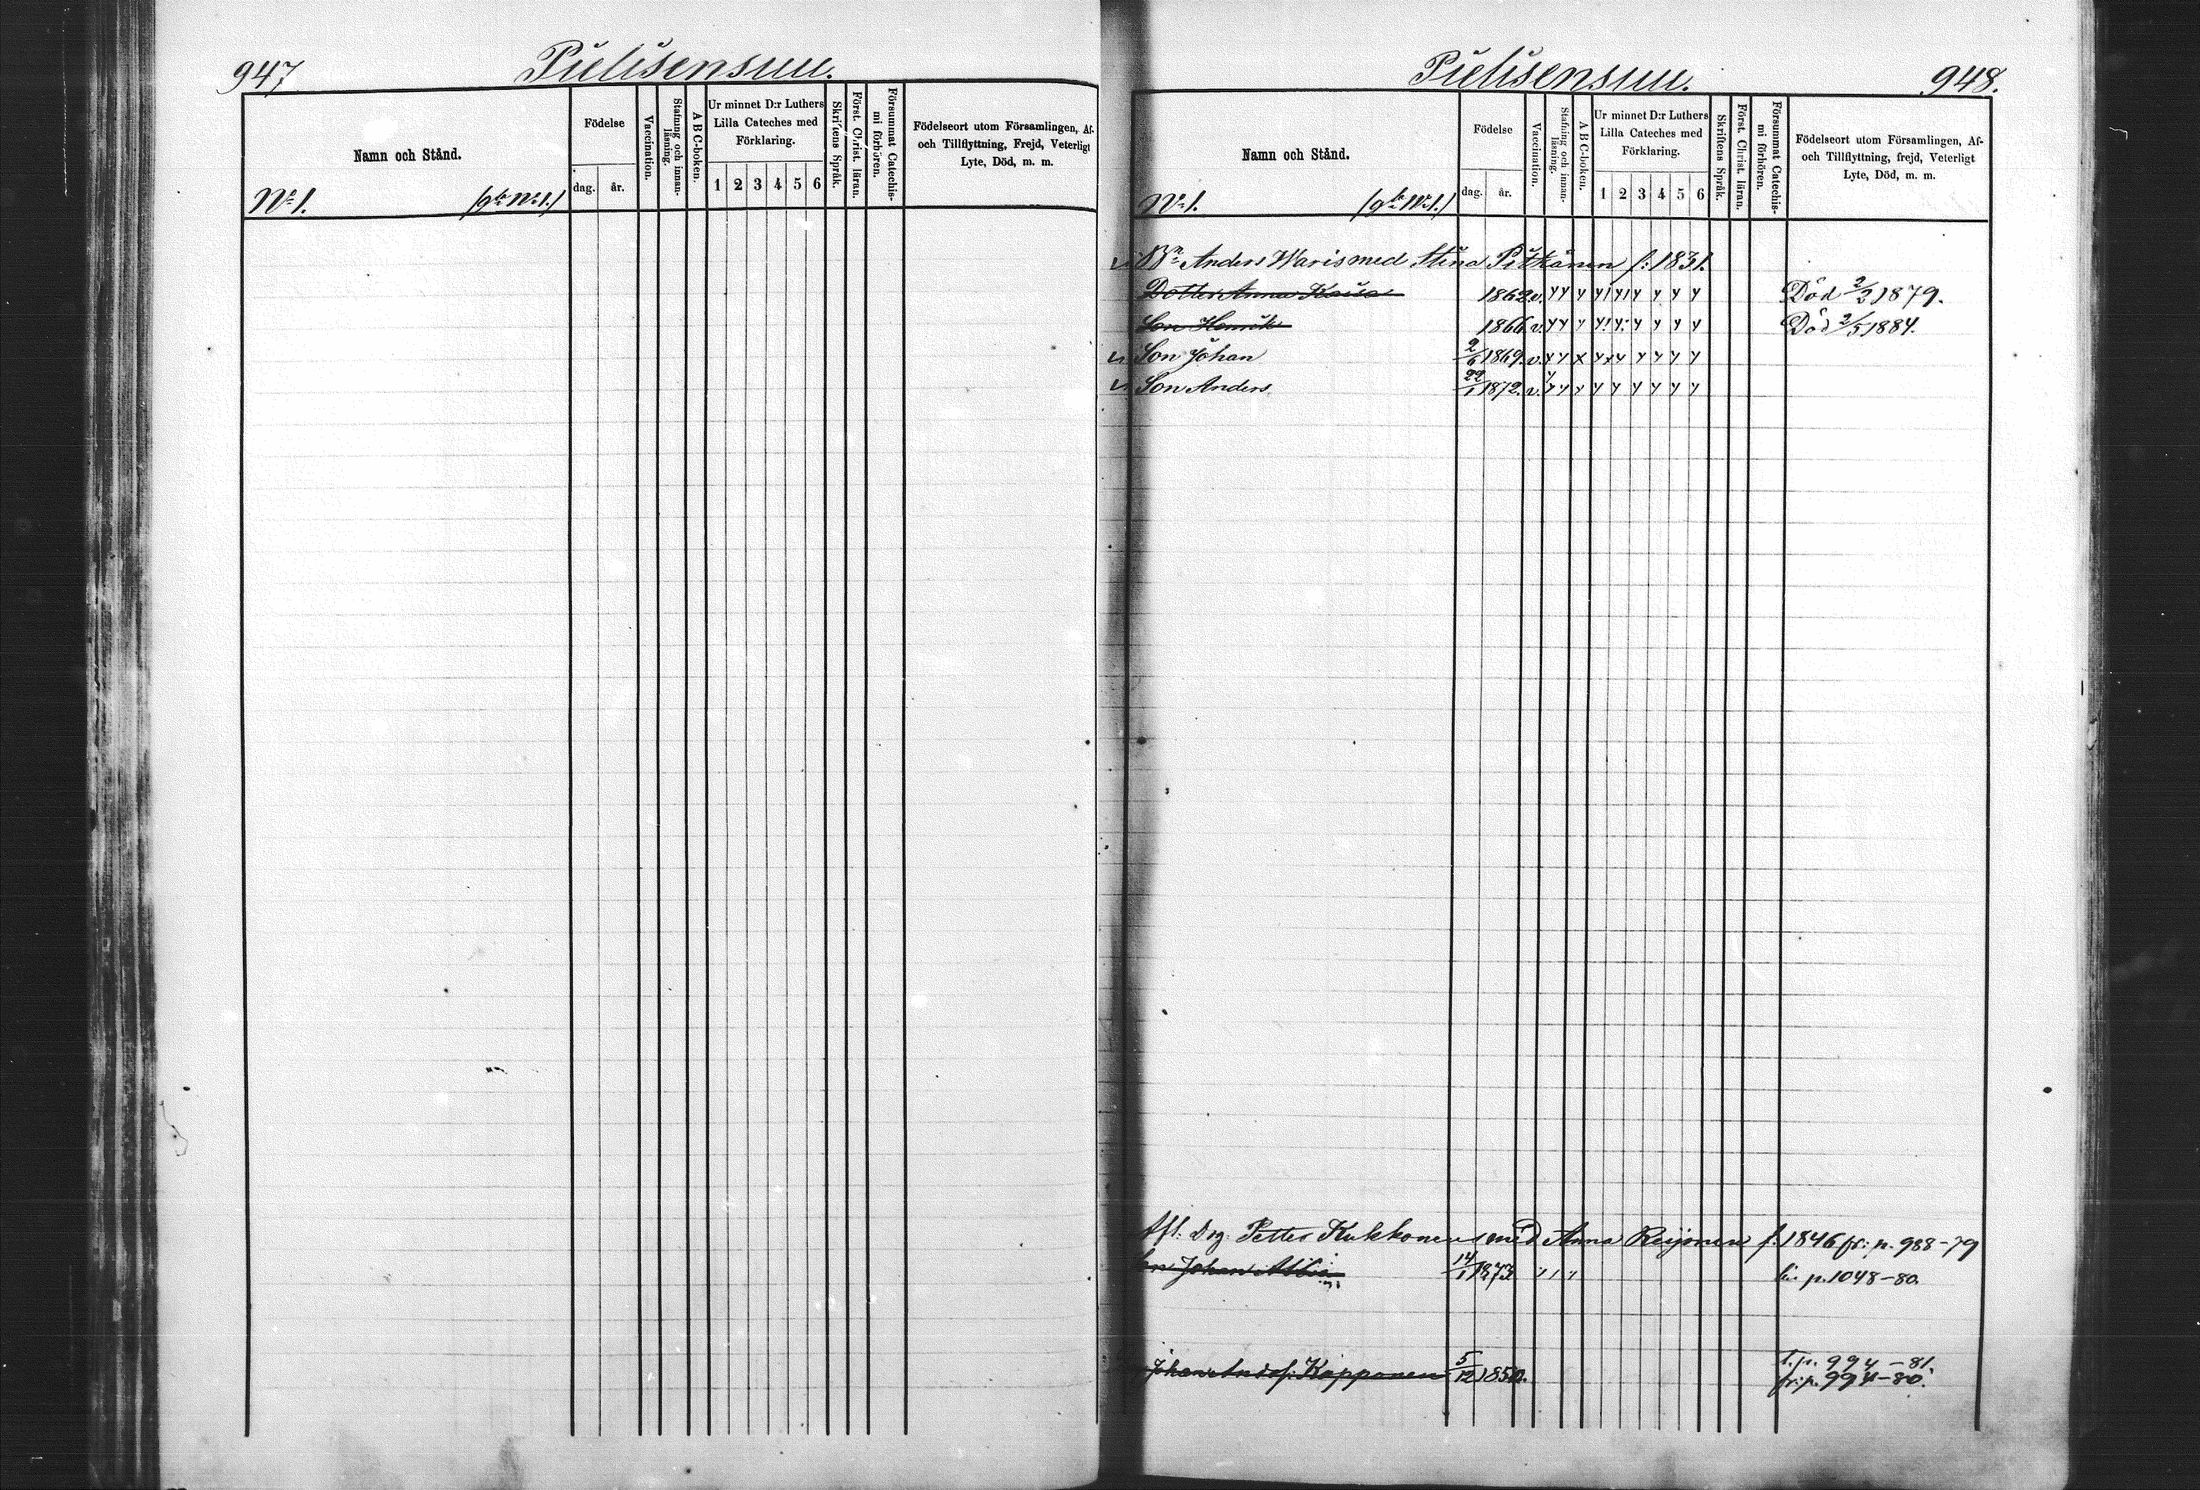 947
Pielisensuu.
Namn och Stånd.
Födelse
dag. år.
Vaccination.
Stafning och innan-
läsning.
A B C-boken.
Ur minnet D:r Luthers
Lilla Cateches med
Förklaring.
1 2 3 4 5 6
Skriftens Språk.
Först. Christ. läran.
Försummat Catechis-
mi förhören.
Födelseort utom Församlingen, Af-
och Tillflyttning, Frejd, Veterligt
Lyte, Död, m. m.
N:o 1. N:o 1.)
Pielisensuu. 948.
Namn och Stånd.
Födelse
dag. år.
Vaccination.
Stafning och innan-
läsning.
A B C-boken.
Ur minnet D:r Luthers
Lilla Cateches med
Förklaring.
1 2 3 4 5 6
Skriftens Språk.
Först. Christ. läran.
Försummat Catechis-
mi förhören.
Födelseort utom Församlingen, Af-
och Tillflyttning, frejd, Veterligt
Lyte, Död, m. m.
N:o 1. N:o 1.)
Bn Anders Waris med Stina Pitkänen f: 1831.
Dotter Anna Kaisa 1862. v. Död 2/3 1879.
Son Henrik 1866. v. Död 2/5 1884.
Son Johan 2/6 1869. v.
Son Anders 22/1 1872. v.
Afl. Drg. Petter Kukkonens med Anna Reijonen f: 1846 fr: p. 988-79
Johan 14/1 1873 p. 1048-80.
Johan Andsf: Kapponen 5/12 1850. t. p. 994-81.
fr: p. 994-80.